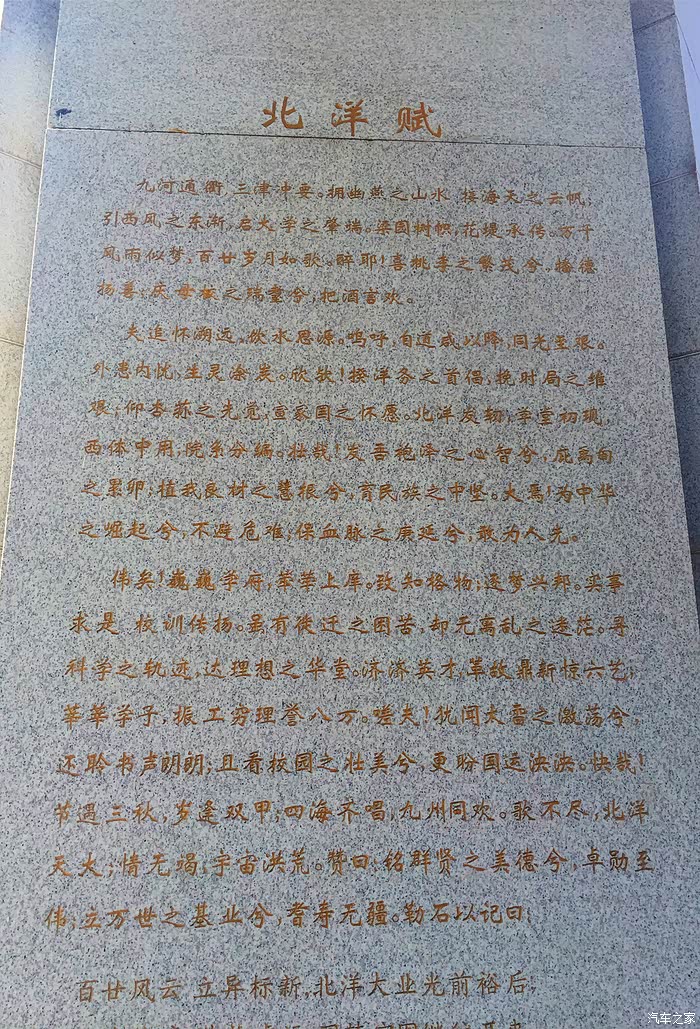 北洋赋
九河通衢,三津冲要。拥幽燕之山水,接海天之云帆;
引西风之东渐,启大学之肇端。梁园树帜,花堤承传。万千
风雨似梦,百廿岁月如歌。醉耶!喜桃李之繁茂兮,播德
扬善;庆母校之瑞重兮,把酒言欢。
夫追怀溯远,饮水思源。呜呼,自道咸以降,同光至衰。
外患内忧,生灵涂炭。欣欤!揆洋务之首倡,挽时局之维
艰;仰李苏之先觉,宣家国之怀愿。北洋发轫,学堂初现,
西体中用,院系分编。壮哉!发吾袍泽之心智兮,庇禹甸
之累卵;植我良材之慧根兮,育民族之中坚。大焉!为中华
之崛起兮,不避危难;保血脉之赓延兮,敢为人先。
伟矣!巍巍学府,莘莘上庠。致知格物,逐梦兴邦。实事
求是,校训传扬。虽有徙迁之困苦,却无离乱之迷茫。寻
科学之轨迹,达理想之华堂。济济英才,革故鼎新惊六艺;
莘莘学子,振工穷理誉八方。嗟夫!犹闻太雷之激荡兮,
还聆书声朗朗;且看校园之壮美兮,更盼国运泱泱。快哉!
节遇三秋,岁逢双甲;四海齐唱,九州同欢。歌不尽,北洋
天大;情无竭,宇宙洪荒。赞曰:铭群贤之美德兮,卓勋至
伟;立万世之基业兮,耆寿无疆。勒石以记曰:
百廿风云,立异标新,北洋大业光前裕后;
汽车之家